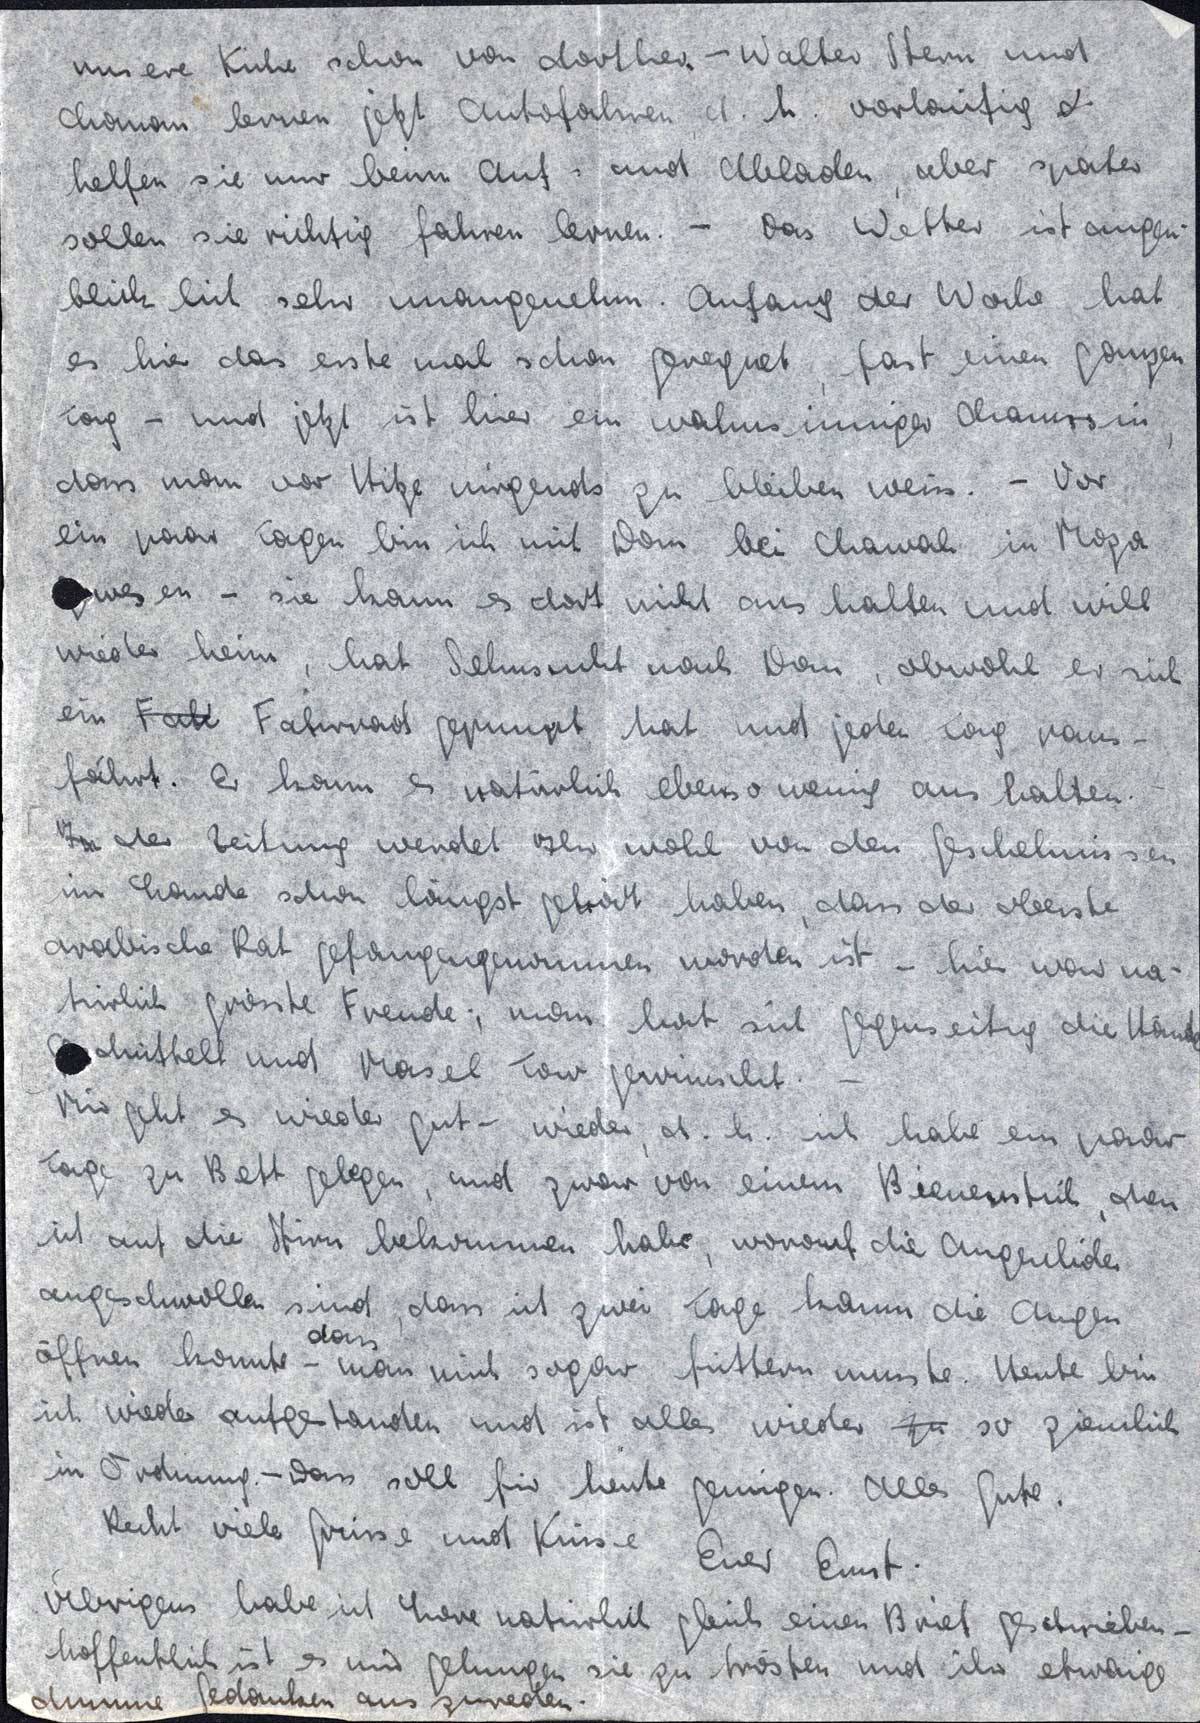 unsere Kühe schon von dorther. - Walter Stern und
Chanan lernen jetzt Autofahren, d. h. vorläufig
helfen sie nur beim Auf- und Abladen, aber später
sollen sie richtig fahren lernen. - Das Wetter ist augen-
blicklich sehr unangenehm. Anfang der Woche hat
es hier das erste mal schon geregnet, fast einen ganzen
Tag - und jetzt ist hier ein wahnsinniger Chamssin,
dass man vor Hitze nirgends zu bleiben weiss. - Vor
ein paar Tagen bin ich mit Dan bei Chawah in Moza
gewesen - sie kann es dort nicht aushalten und will
wieder heim, hat Sehnsucht nach Dan, obwohl er sich
ein Fahrrad gepumpt hat und jeden Tag raus-
fährt. Er kann es natürlich ebensowenig aushalten. -
In der Zeitung werdet Ihr wohl von den Geschehnissen
im Lande schon längst gehört haben, dass der oberste
arabische Rat gefangengenommen worden ist - hier war na-
türlich grösste Freude; man hat sich gegenseitig die Hände
geschüttelt und Masel tow gewünscht. -
Mir geht es wieder gut - wieder, d. h. ich habe ein paar
Tage zu Bett gelegen, und zwar von einem Bienenstich, den
ich auf die Stirn bekommen habe, worauf die Augenlider
angeschwollen sind, dass ich zwei Tage kaum die Augen
öffnen konnte - dass man mich sogar füttern musste. Heute bin
ich wieder aufgestanden und ist alles wieder zu so ziemlich
in Ordnung. - Dass soll für heute genügen. Alles Gute.
Recht viele Grüsse und Küsse Euer Ernst.
Übrigens habe ich Lore natürlich gleich einen Brief geschrieben -
hoffentlich ist es mir gelungen sie zu trösten und ihr etwaige
dumme Gedanken auszureden.